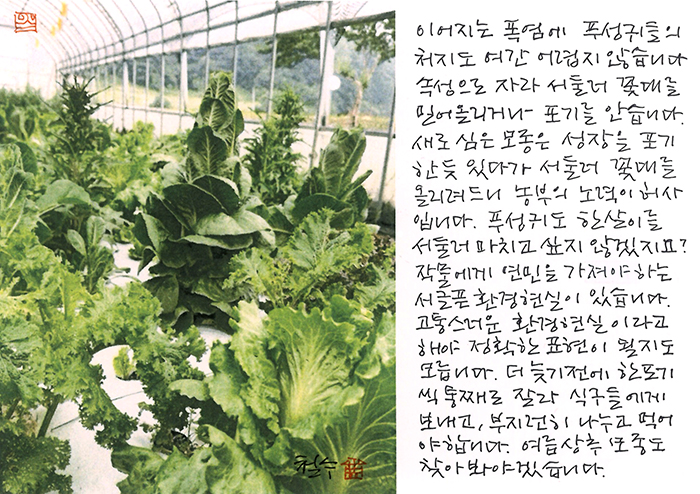 이어지는 폭염에 푸성귀들의
처지도 여간 어렵지 않습니다
속성으로 자라 서둘러 꽃대를
밀어올리거나 포기를 안습니다.
새로 심은 모종은 성장을 포기
한듯 있다가 서둘러 꽃대를
올리려드니 농부의 노력이 허사
입니다. 푸성귀도 한살이를
서둘러 마치고 싶지 않겠지요?
작물에게 연민을 가져야 하는
서글픈 환경현실이 있습니다.
고통스러운 환경현실이라고
해야 정확한 표현이 될지도
모릅니다. 더 늦기전에 한포기
씩 통째로 잘라 식구들에게
보내고, 부지런히 나누고 먹어
야합니다. 여름상추 모종도
찾아봐야겠습니다.
철수